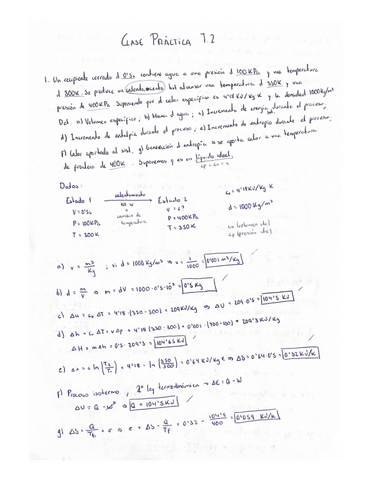 CLASE PRÁCTICA 7.2
1. Un recipiente cerrado d 0'5L contiene agua a una presión d 100 KPa y una temperatura
d 300K. Se produce un calentamiento hasta alcanzar una temperatura d 350K y una
presión de 400KPa. Suponiendo que el calor específico es 4'18 KJ/Kg K y la densidad 1000Kg/m³
Det. a) Volumen específico, b) Masa d agua, c) Incremento de energía durante el proceso,
d) Incremento de entalpía durante el proceso, e) Incremento de entropía durante el proceso,
f) Calor aportado al sist. g) Generación d entropía si se aporta calor a una temperatura
de frontera de 400K. Suponemos q es un líquido ideal.
Datos:
Estado 1 calentamiento Estado 2
V = 0'5L V = c?
P = 100KPa cambio de P = 400KPa
T = 300K temperatura T = 350K
c = 4'18KJ/Kg K
d = 1000 Kg/m³
a) v = m³/Kg ; si d = 1000 Kg/m³ ⇒ v = 1/1000 = 0'001 m³/Kg
b) d = m/V ⇒ m = dV = 1000 · 0'5 · 10⁻³ = 0'5 Kg
c) Δu = c, ΔT = 4'18 · (350 - 300) = 209KJ/Kg ⇒ ΔU = 209 · 0'5 = 104'5 KJ
d) Δh = c, ΔT + vΔp = 4'18 (350 - 300) + 0'001 · (400 - 100) = 209'3 KJ/Kg
ΔH = mΔh = 0'5 · 209'3 = 104'65 KJ
e) Δs = c ln (T₂/T₁) = 4'18 · ln (350/300) = 0'64 KJ/Kg K ⇒ ΔS = 0'64 · 0'5 = 0'32 KJ/K
f) Proceso isotermo, 2ª ley termodinámica → ΔE = Q - W
ΔU = Q - W ⇒ Q = 104'5 KJ
g) ΔS = Q/Tf + σ ⇒ σ = ΔS - Q/Tf = 0'32 - 104'5/400 = 0'059 KJ/K